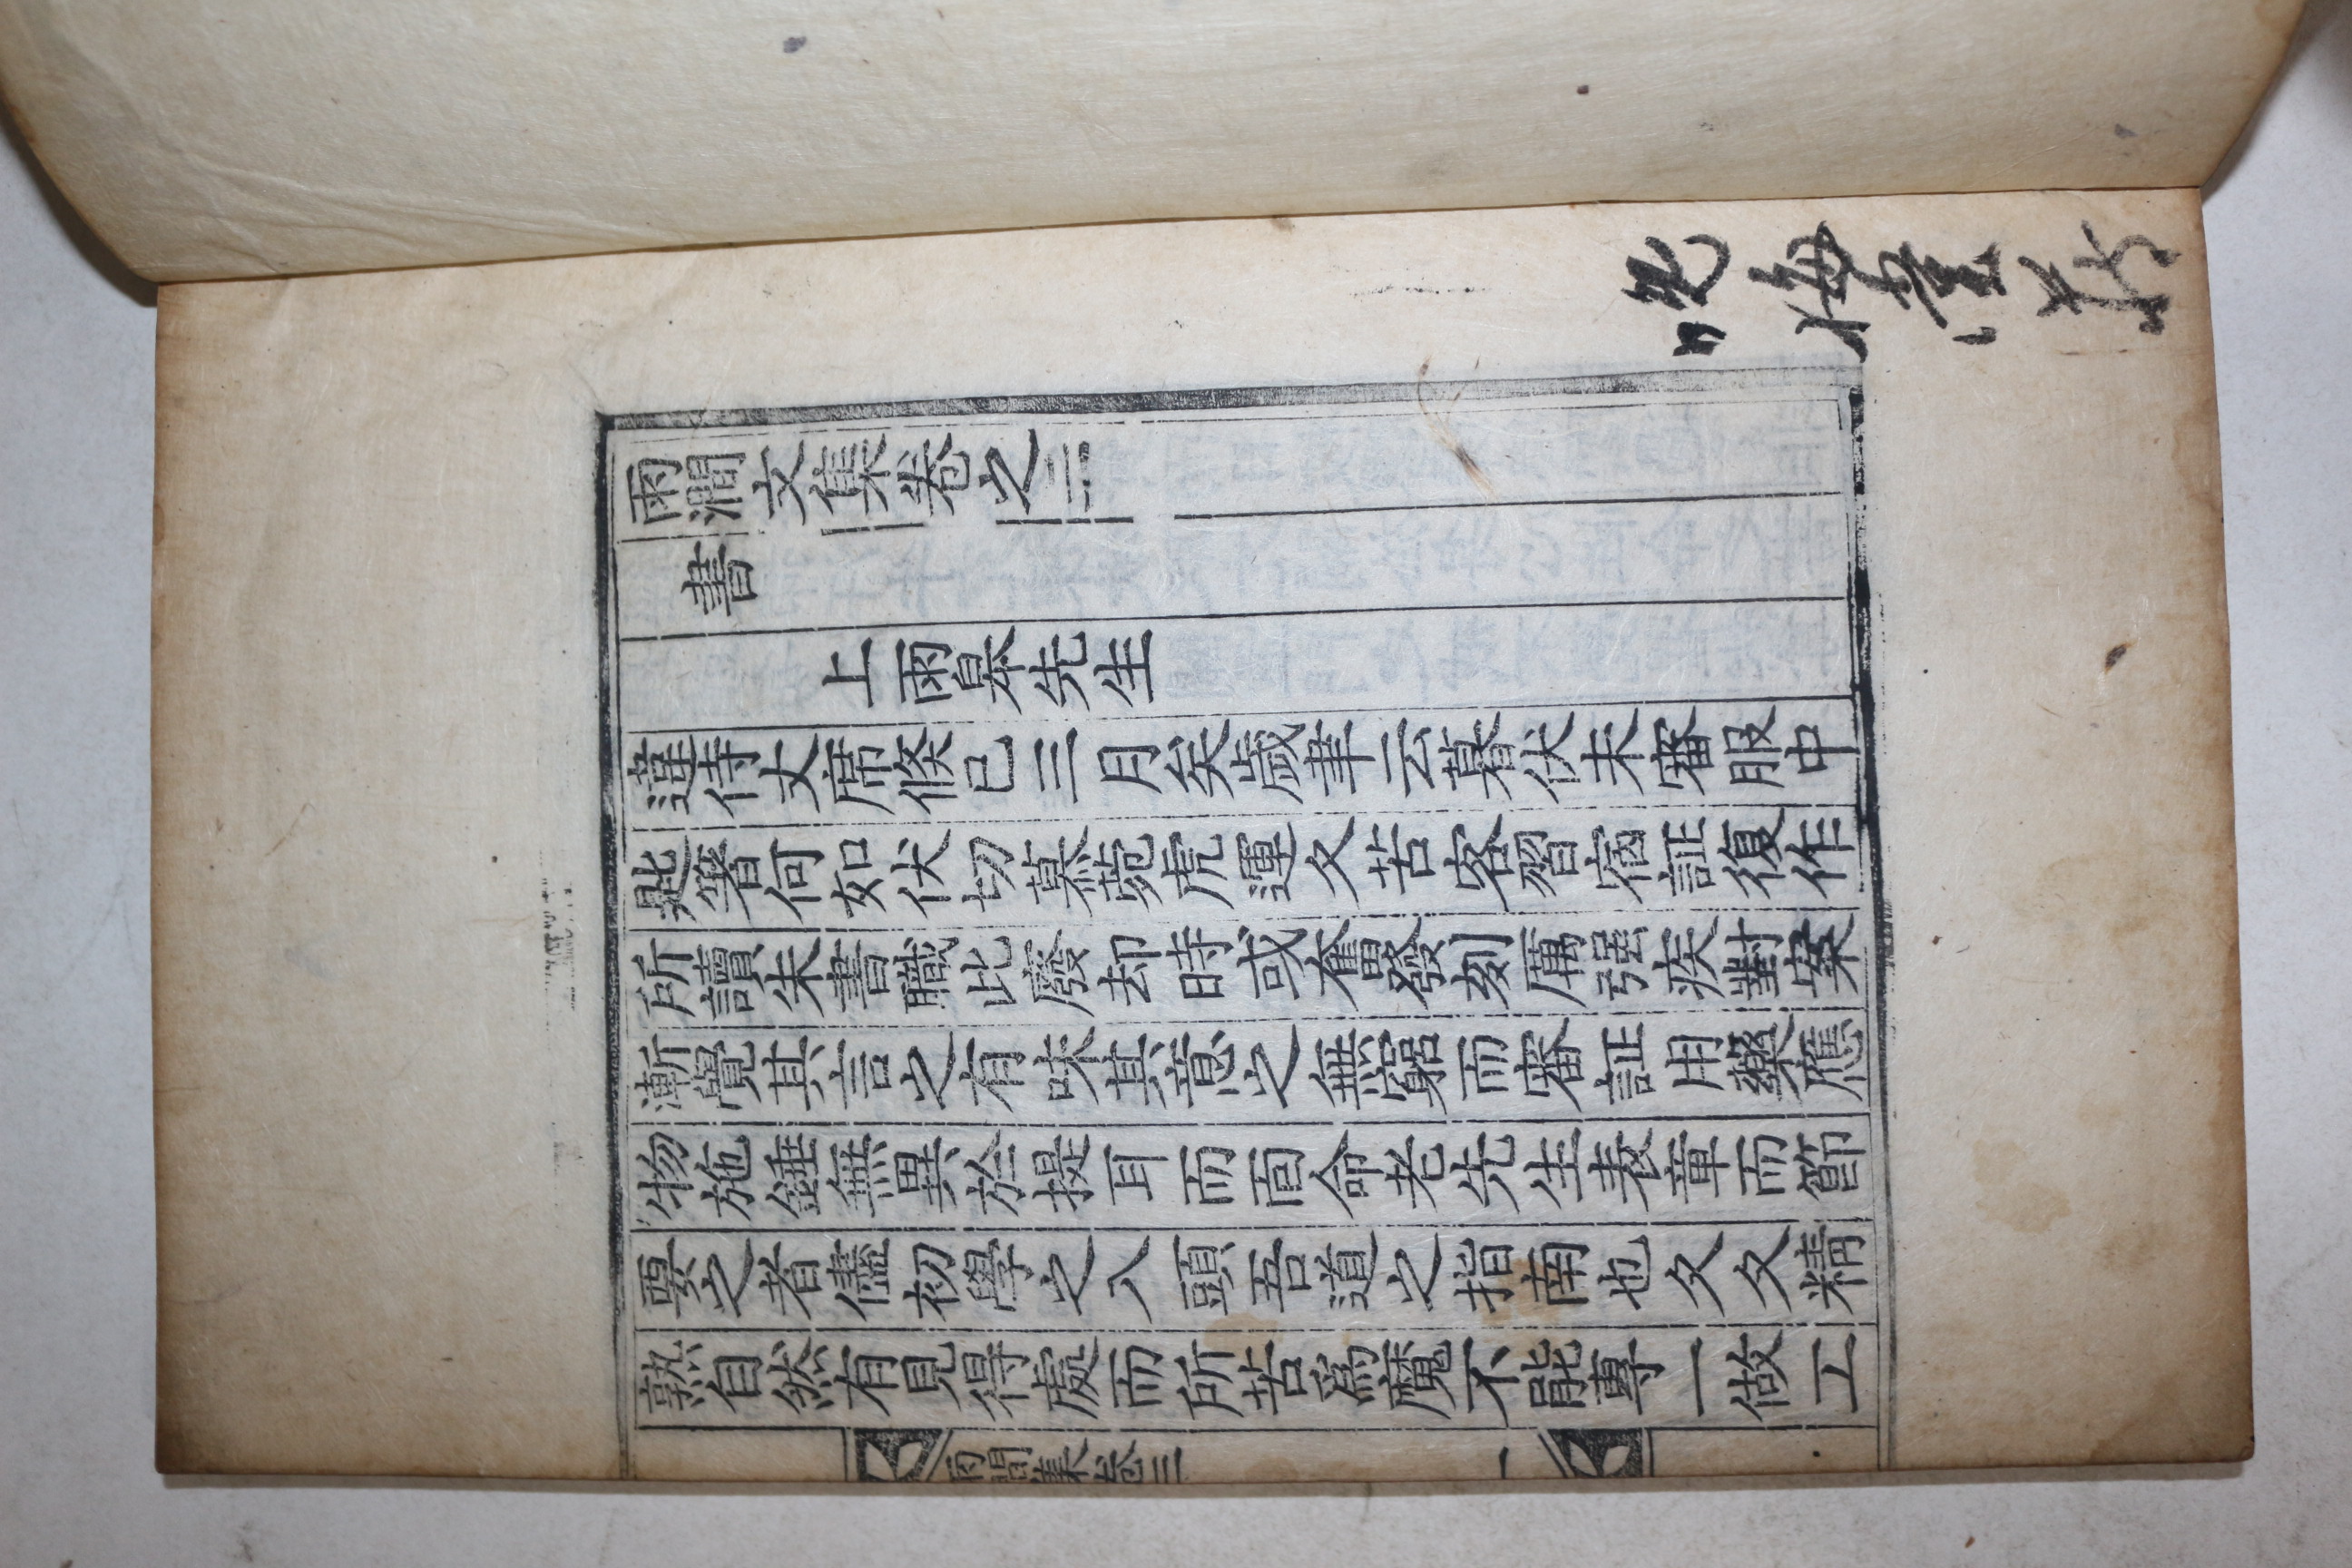 雨澗文集卷之三
書
上雨皐先生
違侍丈席倏已三月矣歲聿云暮伏未審服中
匙箸何如伏切慕菀虎運久苦客習宿証復作
所讀朱書職此廢却時或奮發刻厲强疾對案
漸覺其言之有味其意之無窮而審証用藥應
物施錘無異於提耳而面命老先生表章而節
要之者儘初學之入頭吾道之指南也久久精
熟自然有見得處而所苦爲魔不能專一做工
雨澗集卷三 一
晩悔堂藏